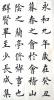 永和九年歲在癸丑
暮春之初會于會稽山
陰之蘭亭脩禊事也
群賢畢至少長咸集